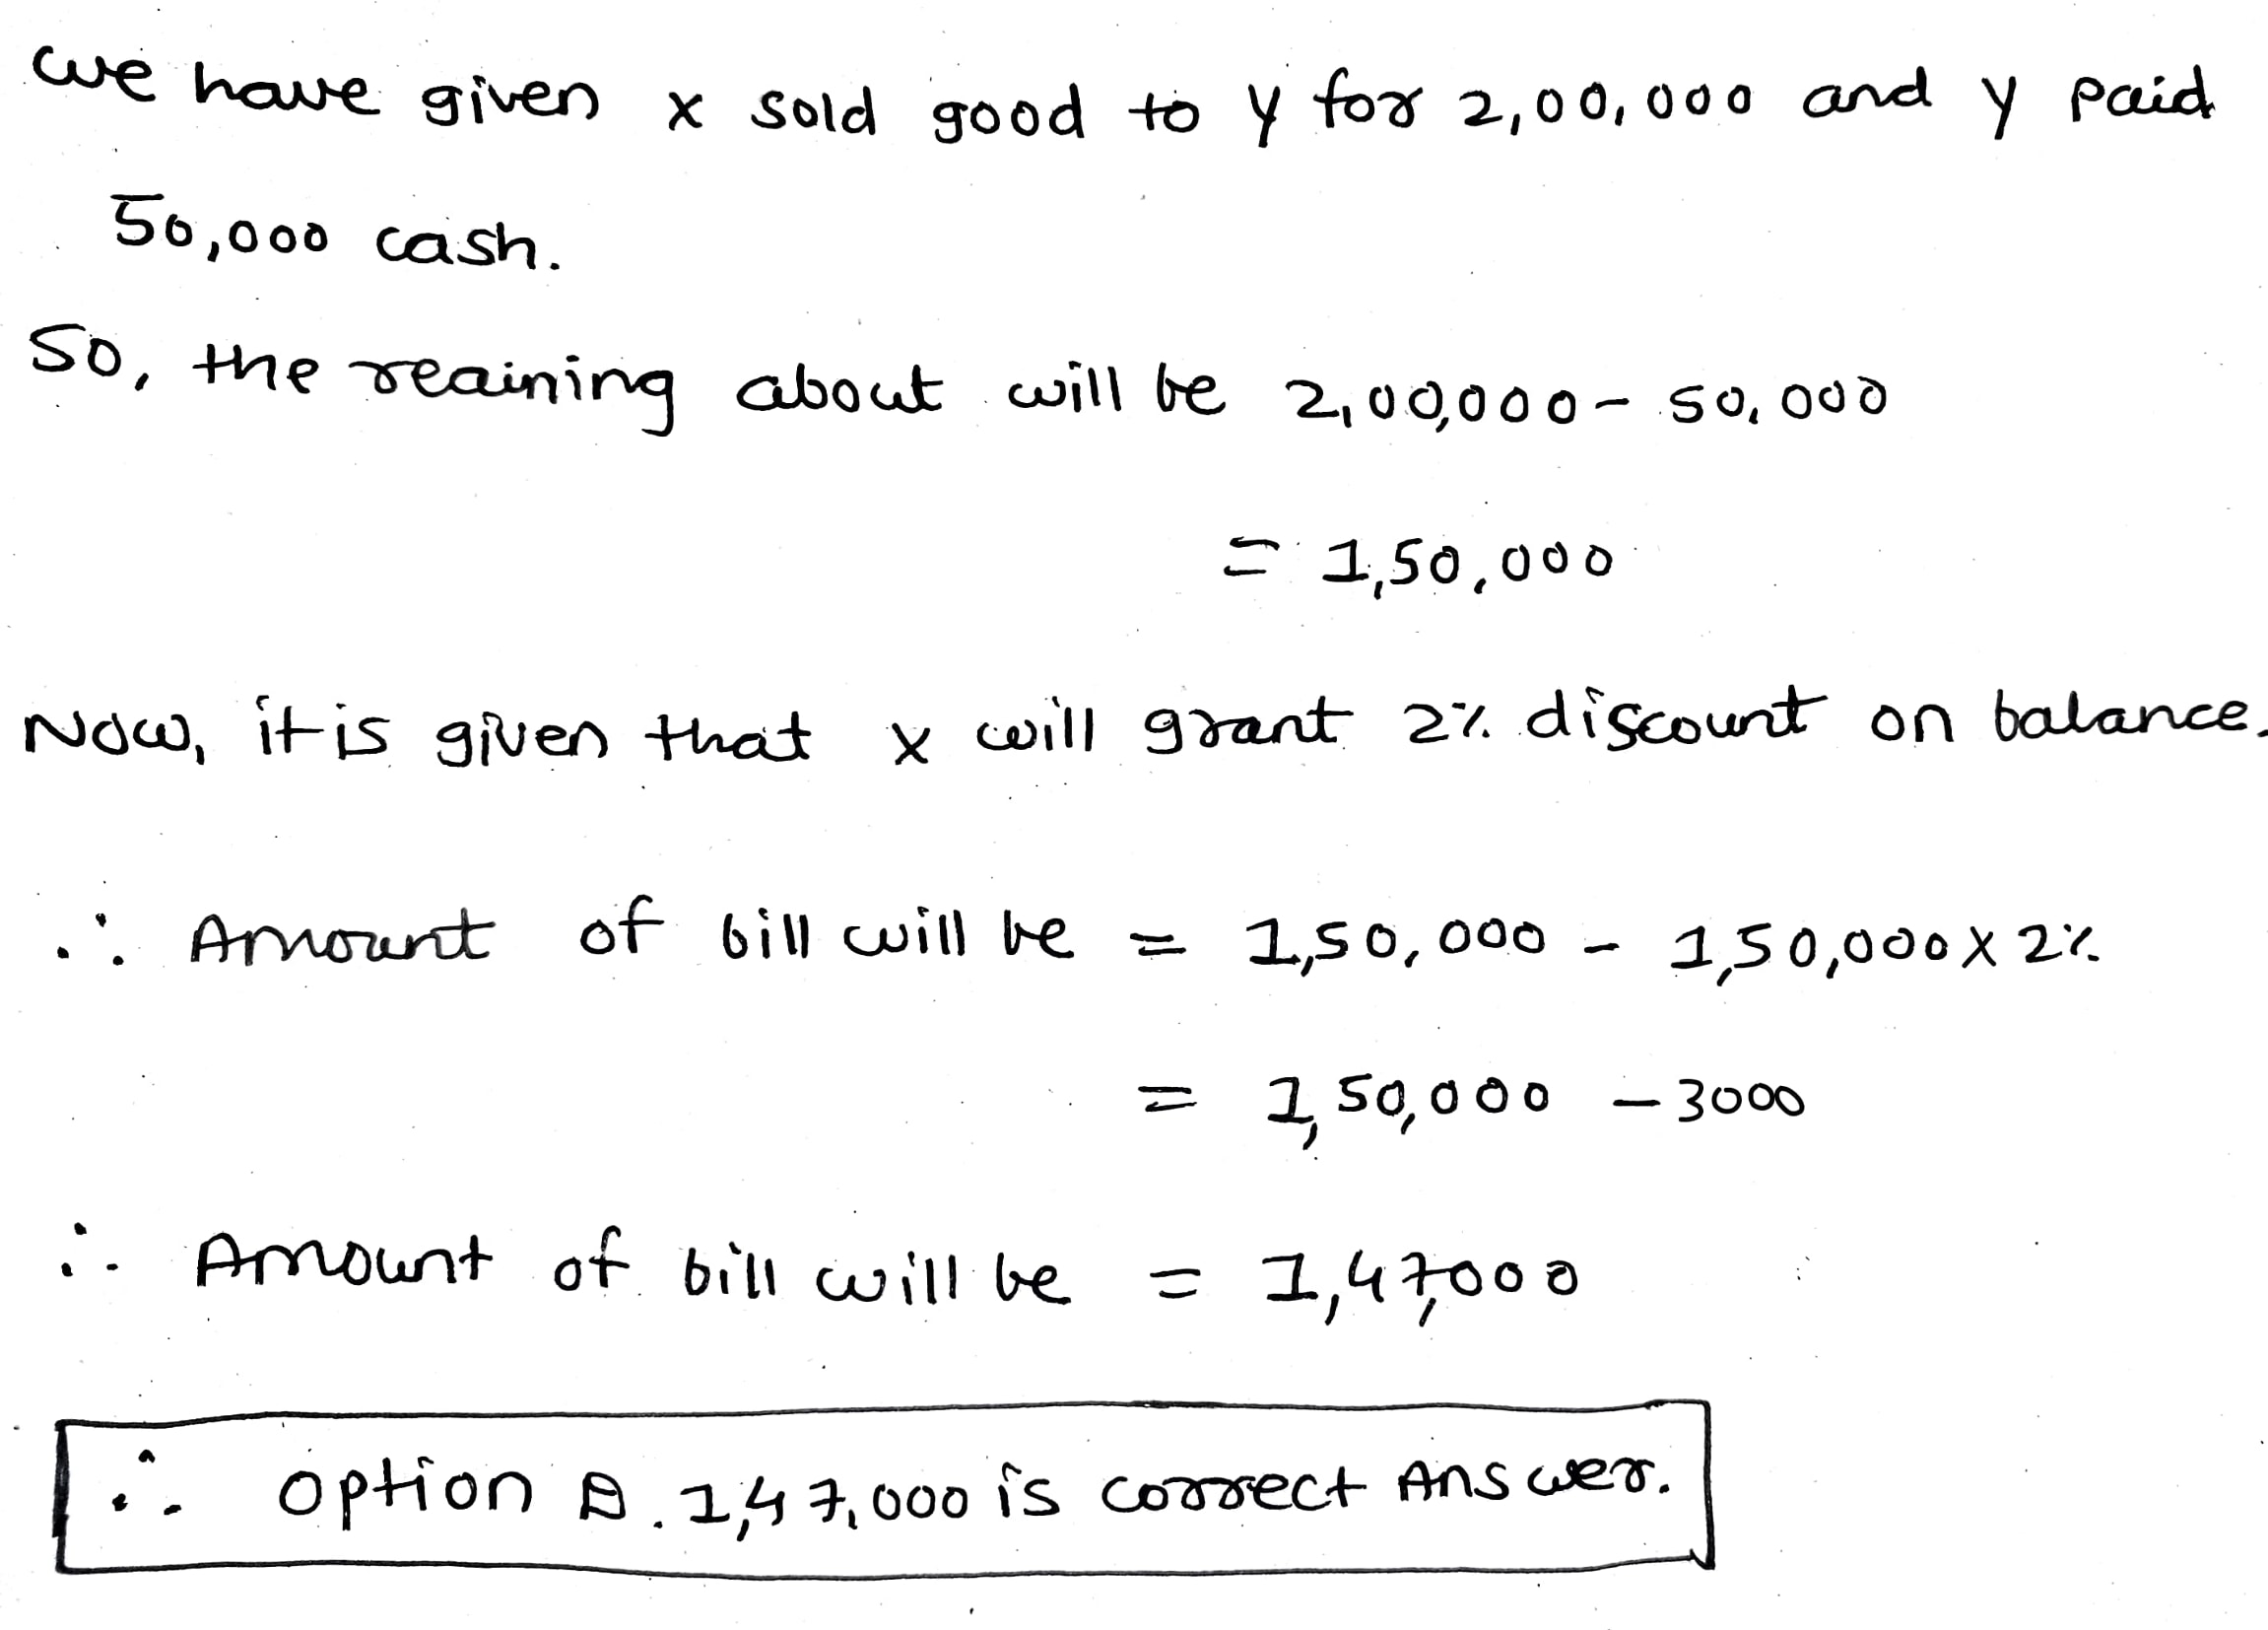 we have given x sold good to y for 2,00,000 and y paid
50,000 cash.
So, the reaining about will be 2,00,000 - 50,000
= 1,50,000
Now, it is given that x will grant 2% discount on balance.
∴ Amount of bill will be = 1,50,000 - 1,50,000 x 2%
= 1,50,000 - 3000
∴ Amount of bill will be = 1,47,000
∴ option . 1,47,000 is correct Answer.